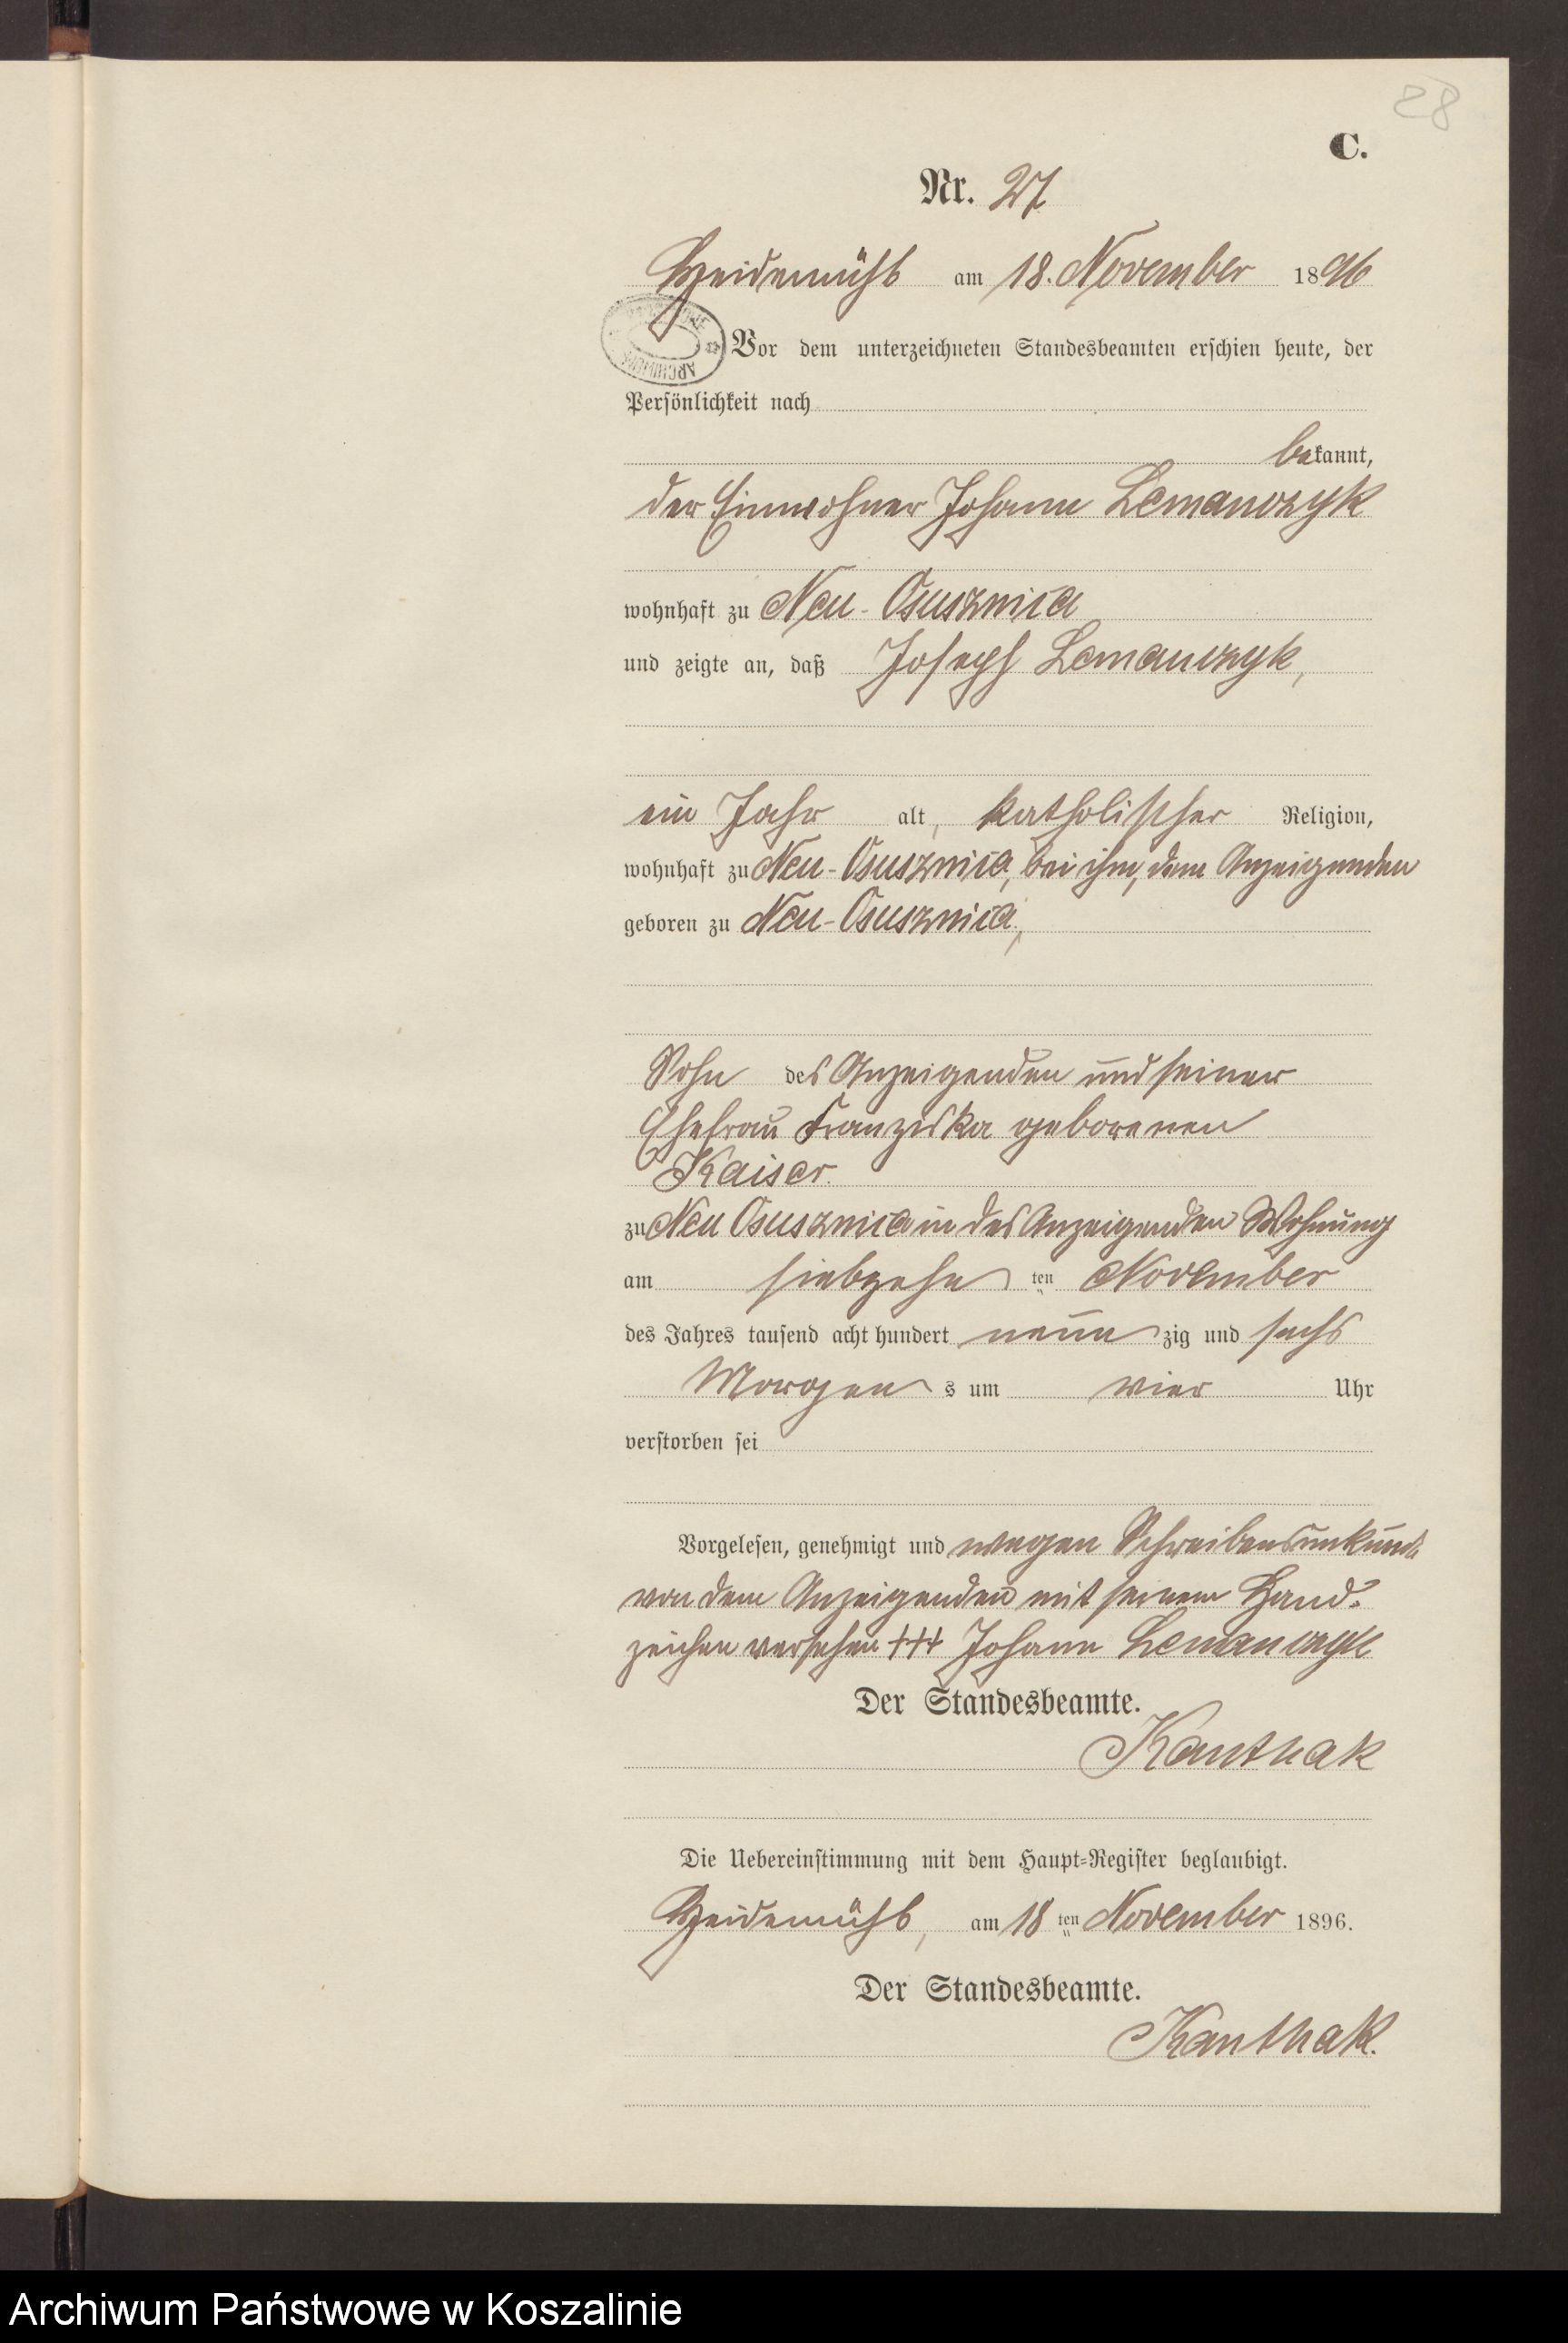 28
C.
Nr. 27
Heidemühl am 18. November 1896
Vor dem unterzeichneten Standesbeamten erschien heute, der
Persönlichkeit nach
bekannt,
der Einwohner Johann Lemanczyk
wohnhaft zu Neu-Osusznica
und zeigte an, daß Joseph Lemanczyk,
ein Jahr alt, katholischer Religion,
wohnhaft zu Neu-Osusznica, bei ihm, dem Anzeigenden
geboren zu Neu-Osusznica,
Sohn des Anzeigenden und seiner
Ehefrau Franziska geborenen
Kaiser.
zu Neu Osusznica in des Anzeigenden Wohnung
am siebzehn ten November
des Jahres tausend acht hundert neunzig und sechs
Morgens um vier Uhr
verstorben sei
Vorgelesen, genehmigt und wegen Schreibensunkunde
von dem Anzeigenden mit seinem Hand-
zeichen versehen +++ Johann Lemanczyk
Der Standesbeamte.
Kanthak
Die Uebereinstimmung mit dem Haupt-Register beglaubigt.
Heidemühl, am 18ten November 1896.
Der Standesbeamte.
Kanthak.
Archiwum Państwowe w Koszalinie